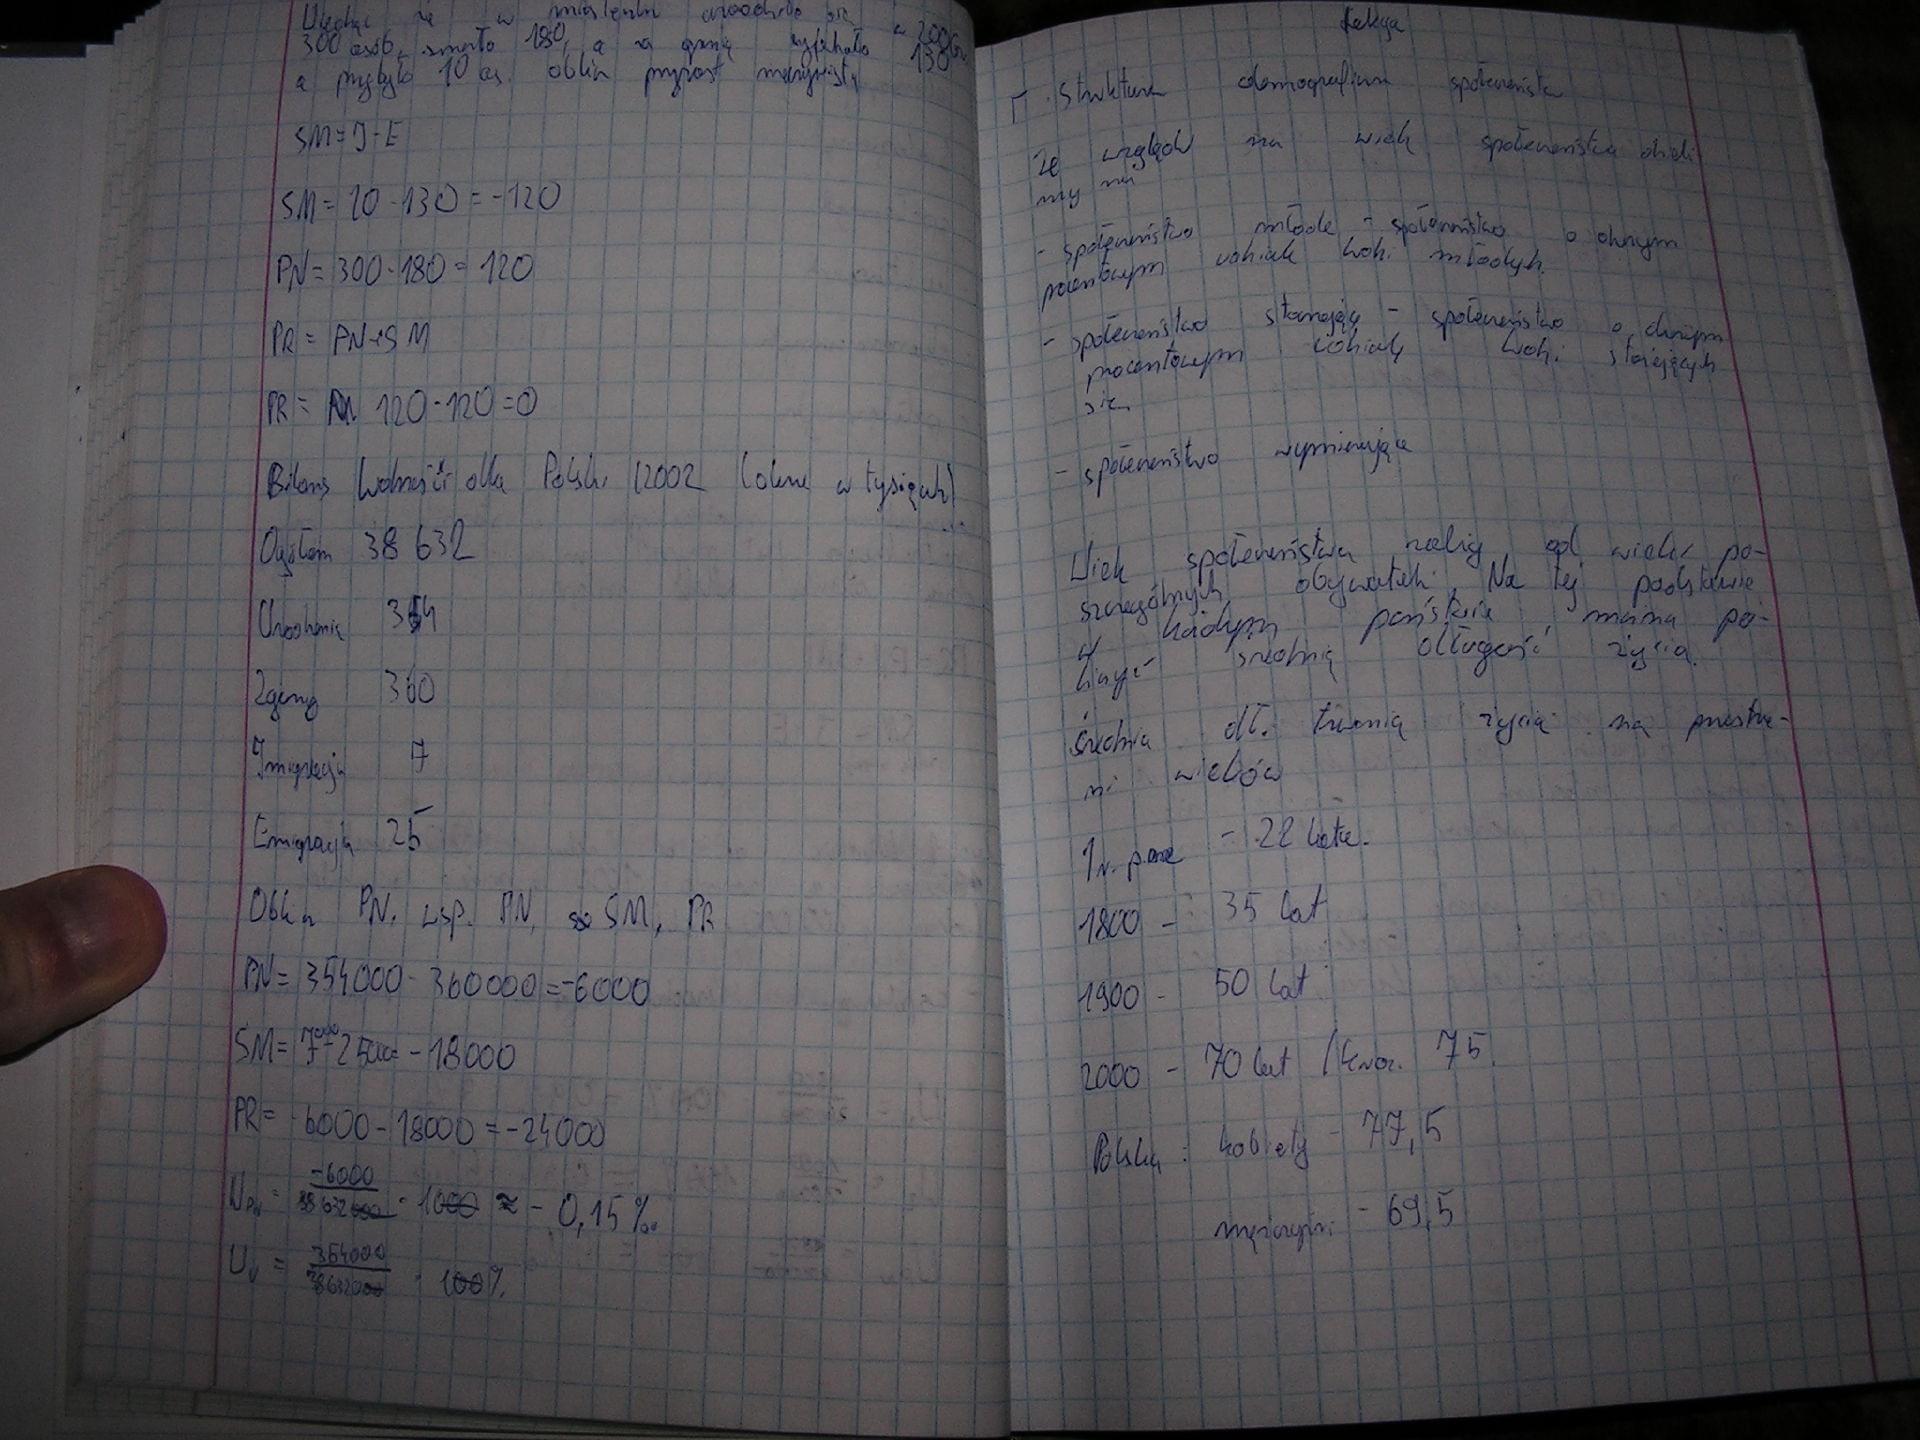 że w miasteczku urodziło się w 2006r.
300 osób, zmarło 180, a za granicę wyjechało 130
a przybyło 10 os. oblicz przyrost rzeczywisty
SM = J - E
SM = 10 - 130 = -120
PN = 300 - 180 = 120
PR = PN + SM
PR = 120 - 120 = 0
Bilans ludności dla Polski (2002 (dane w tysiącach)
Ogółem 38 632
Urodzenia 354
Zgony 360
Imigracja 7
Emigracja 25
Oblicz PN, wsp. PN, SM, PR
PN = 354000 - 360000 = -6000
SM = 7000 - 25000 = -18000
PR = -6000 - 18000 = -24000
WPN = -6000 / 38 632 000 · 1000 ≈ - 0,15 ‰
UU = 354000 / 38632000 · 100%
Lekcja
T. Struktura demograficzna społeczeństwa
Ze względu na wiek społeczeństwa dzieli
my na
- społeczeństwo młode - społeczeństwo o dużym
procentowym udziale ludzi młodych.
- społeczeństwo starzejące - społeczeństwo o dużym
procentowym udziale ludzi starzejących
się
- społeczeństwo wymierające
Wiek społeczeństwa zależy od wieku po-
szczególnych obywateli. Na tej podstawie
w każdym państwie można po-
liczyć średnią długość życia.
Średnia dł. trwania życia na przestrze-
ni wieków
1 r. p.n.e - 22 lata.
1800 - 35 lat
1900 - 50 lat
2000 - 70 lat / 75.
Polska: kobiety - 77,5
mężczyźni - 69,5